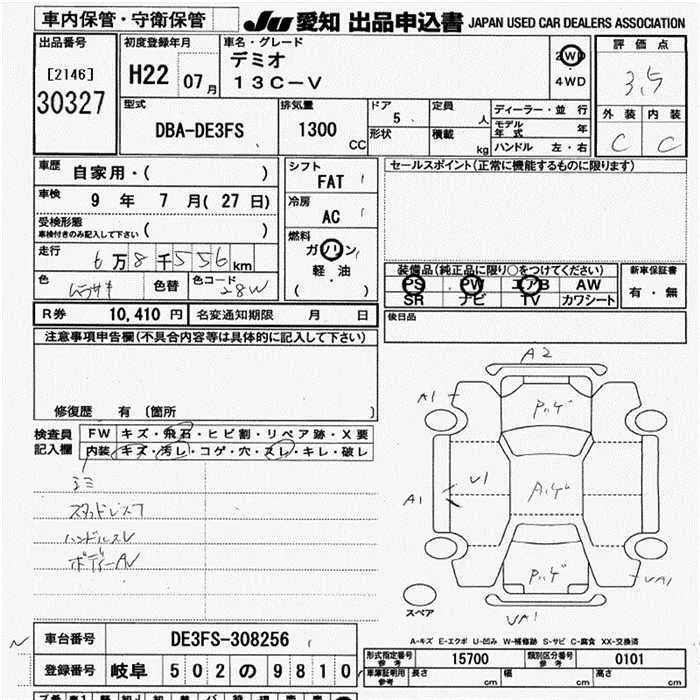 車内保管・守衛保管
JU 愛知 出品申込書 JAPAN USED CAR DEALERS ASSOCIATION
出品番号
[2146]
30327
初度登録年月
H22 07 月
車名・グレード
デミオ
13C-V
2WD
4WD
評価点
3.5
外装 内装
C C
型式
DBA-DE3FS
排気量
1300 CC
ドア
5
形状
定員 人
積載 kg
ディーラー・並行
モデル年式 年
ハンドル 左・右
車歴
自家用・( )
車検
9 年 7 月 (27 日)
受検形態
車検付きのみ記入して下さい ( )
走行
6万8千556 km
色
ムラサキ
色替
色コード
28W
シフト
FAT
冷房
AC
燃料
ガソリン
軽・油
( )
セールスポイント(正常に機能するものに限ります)
装備品(純正品に限り○をつけてください)
PS PW エアB AW
SR ナビ TV カワシート
新車保証書
有・無
後日品
R券 10,410 円
名変通知期限 月 日
注意事項申告欄(不具合内容等は具体的に記入して下さい)
修復歴 有 〔箇所 〕
検査員
記入欄
FW キズ・飛石・ヒビ割・リペア跡・X要
内装 キズ・汚レ・コゲ・穴・スレ・キレ・破レ
シミ
スタッドレス7
ハンドルスレ
A2
A1
ハゲ
A1
U1
A.ハゲ
ハゲ
UA1
UA1
スペア
A-キズ E-エクボ U-凹み W-補修跡 S-サビ C-腐食 XX-交換済
車台番号
DE3FS-308256
登録番号
岐阜 502 の 9810
形式指定番号
参考
15700
類別区分番号
参考
0101
車庫証明用
参考
長さ cm
幅 cm
高さ cm